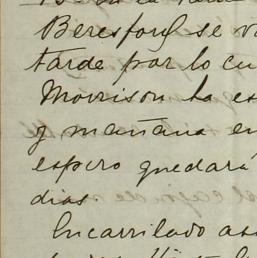 Beresford se
tarde por lo
Morrison ha
y mañana en
espero quedará
dias.
Encarrilado